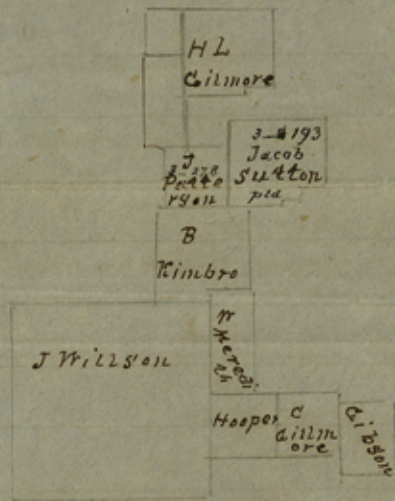 H L
Gilmore
3 193
Jacob
Sutton
pid
J
278
Patte
rson
B
Kimbro
J Willson
W
Meredi
th
Hooper
C
Gillm
ore
Gibson